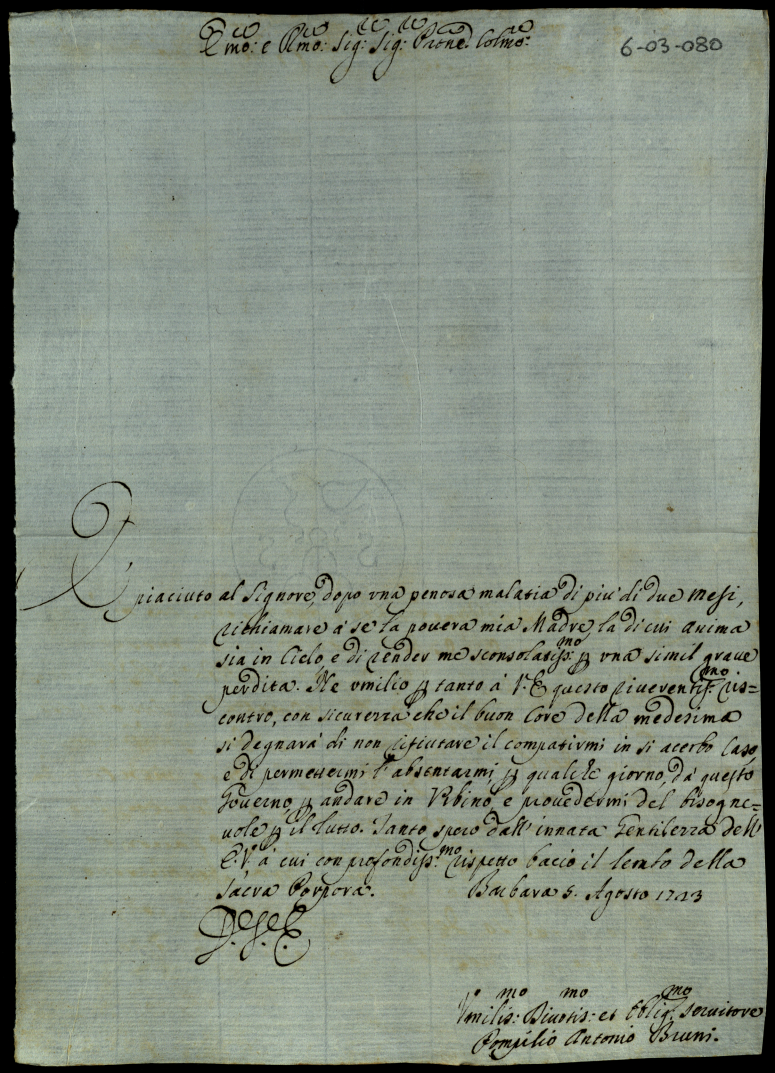 E.mo: e R.mo: Sig.re Sig.re Pad.ne Colmo:
6-03-080
È piaciuto al Signore, dopo vna penosa malatia di piu' di due mesi,
richiamare a' se la pouera mia Madre, la di cui anima
sia in Cielo, e di render me sconsolatiss:mo p vna simil graue
perdita. Ne vmilio p tanto a' V. E. questo riuerentis:mo ris=
contro, con sicurezza che il buon Core della medesima
si degnara' di non rifiutare il compatirmi in si acerbo Caso,
e di permettermi l'absentarmi, p qualche giorno, da' questo
Gouerno, p andare in Vrbino, e prouedermi del bisogne=
uole p il lutto. Tanto spero dall'innata Gentilezza dell'
E. V. a' cui con profondiss:mo rispetto bacio il lembo della
Sacra Porpora. Barbara 5. Agosto 1743
D. V. E.
Vmilis:mo Diuotis:mo et Oblig:mo seruitore
Pompilio Antonio Bruni.